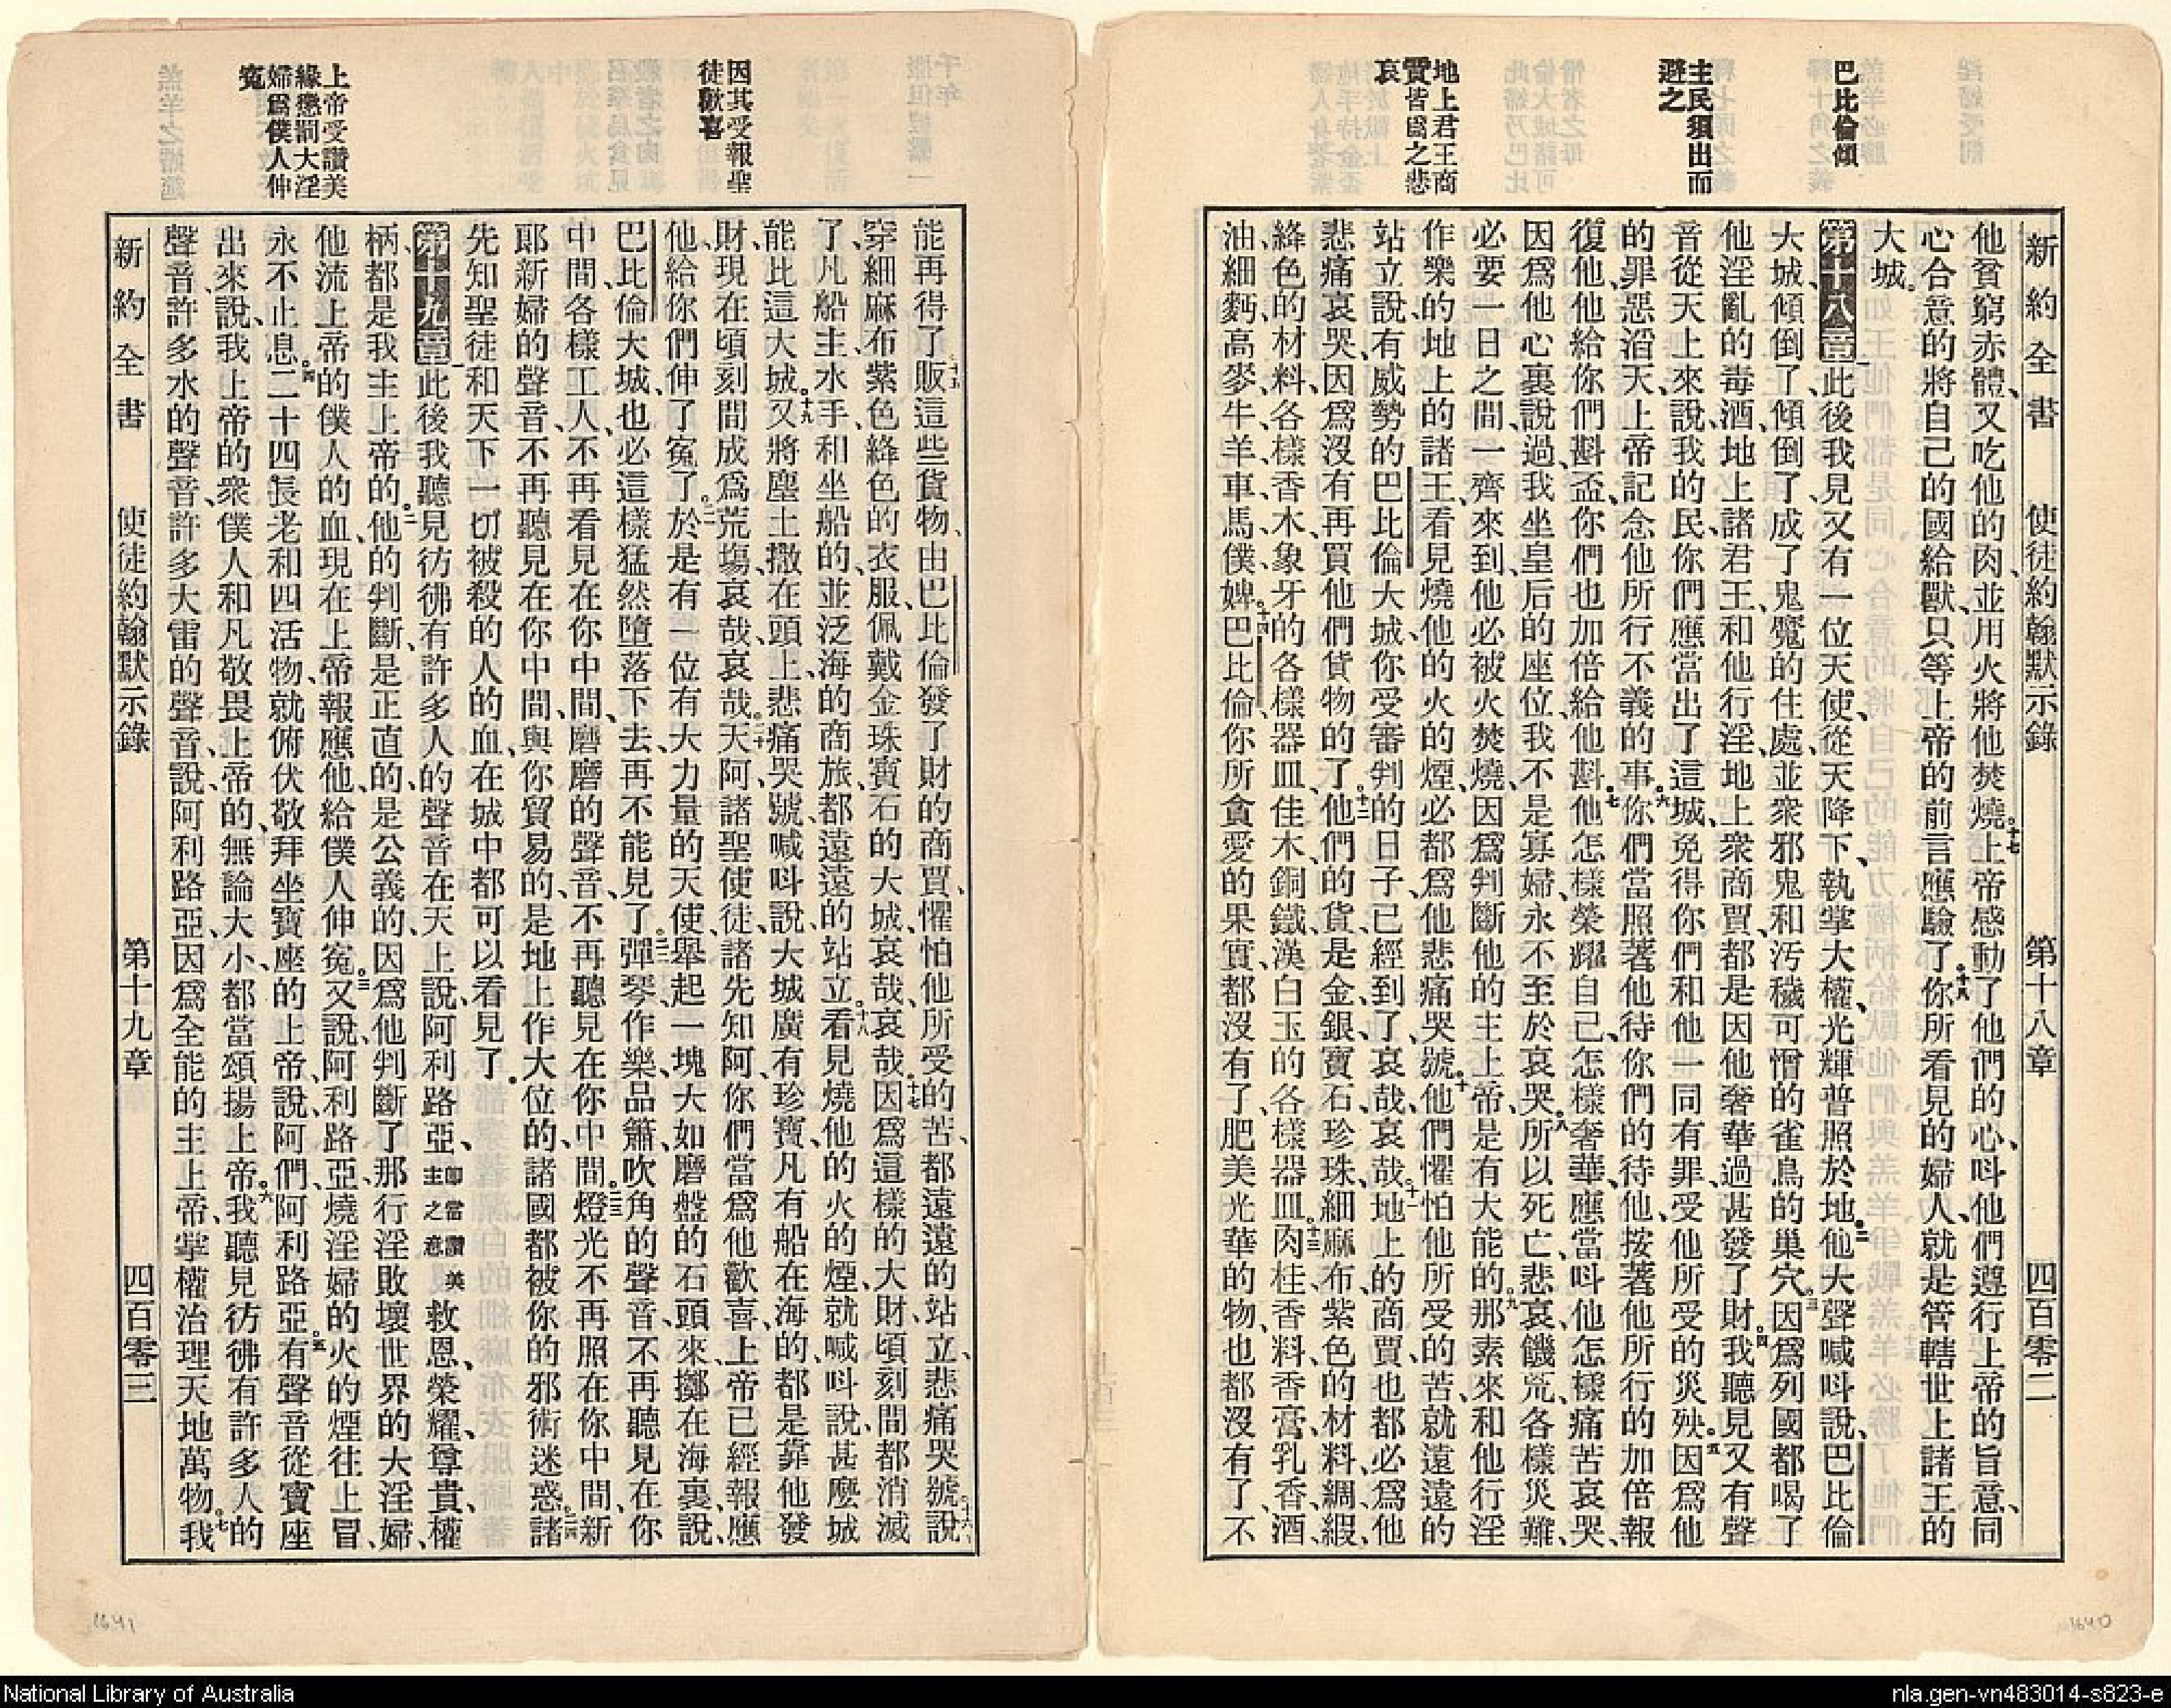 新約全書 使徒約翰默示錄 第十八章 四百零二
巴比倫傾
主民須出而
避之
地上君王商
賈皆爲之悲
哀
他貧窮赤體、又吃他的肉、並用火將他焚燒。十七上帝感動了他們的心、呌他們遵行上帝的旨意、同
心合意的將自己的國給獸、只等上帝的前言應驗了。十八你所看見的婦人、就是管轄世上諸王的
大城。
第十八章 一此後我見又有一位天使、從天降下、執掌大權、光輝普照於地。二他大聲喊呌說、巴比倫
大城傾倒了、傾倒了、成了鬼魔的住處、並衆邪鬼和汚穢可憎的雀鳥的巢穴。三因爲列國都喝了
他淫亂的毒酒、地上諸君王和他行淫、地上衆商賈都是因他奢華過甚發了財。四我聽見又有聲
音從天上來說、我的民、你們應當出了這城、免得你們和他一同有罪、受他所受的災殃。五因爲他
的罪惡滔天、上帝記念他所行不義的事。六你們當照著他待你們的待他、按著他所行的加倍報
復他、他給你們斟盃、你們也加倍給他斟。七他怎樣榮耀自己、怎樣奢華、應當呌他怎樣痛苦哀哭、
因爲他心裏說過、我坐皇后的座位、我不是寡婦、永不至於哀哭。八所以死亡、悲哀、饑荒、各樣災難、
必要一日之間、一齊來到、他必被火焚燒、因爲判斷他的主上帝、是有大能的。九那素來和他行淫
作樂的地上的諸王、看見燒他的火的煙、必都爲他悲痛哭號。十他們懼怕他所受的苦、就遠遠的
站立說、有威勢的巴比倫大城、你受審判的日子已經到了、哀哉、哀哉。十一地上的商賈、也都必爲他
悲痛哀哭、因爲沒有再買他們貨物的了。十二他們的貨是金銀、寶石、珍珠、細麻布、紫色的材料、綢緞、
絳色的材料、各樣香木、象牙的各樣器皿、佳木、銅、鐵、漢白玉的各樣器皿。十三肉桂、香料、香膏、乳香、酒、
油、細麪、高麥、牛、羊、車、馬、僕婢。十四巴比倫、你所貪愛的果實、都沒有了、肥美光華的物、也都沒有了、不
因其受報聖
徒歡喜
上帝受讚美
緣懲罰大淫
婦爲僕人伸
寃
能再得了。十五販這些貨物、由巴比倫發了財的商賈、懼怕他所受的苦、都遠遠的站立、悲痛哭號說。十六
穿細麻布紫色絳色的衣服、佩戴金珠寶石的大城、哀哉、哀哉。十七因爲這樣的大財、頃刻間都消滅
了、凡船主、水手、和坐船的、並泛海的商旅、都遠遠的站立。十八看見燒他的火的煙、就喊呌說、甚麼城
能比這大城。十九又將塵土撒在頭上、悲痛哭號、喊呌說、大城廣有珍寶、凡有船在海的、都是靠他發
財、現在頃刻間成爲荒塲、哀哉、哀哉。二十天阿、諸聖使徒、諸先知阿、你們當爲他歡喜、上帝已經報應
他、給你們伸了寃了。二一於是有一位有大力量的天使、舉起一塊大如磨盤的石頭來、擲在海裏、說、
巴比倫大城、也必這樣猛然墮落下去、再不能見了。二二彈琴、作樂、品簫、吹角的聲音、不再聽見在你
中間、各樣工人、不再看見在你中間、磨磨的聲音、不再聽見在你中間。二三燈光不再照在你中間、新
郎新婦的聲音、不再聽見在你中間、與你貿易的、是地上作大位的、諸國都被你的邪術迷惑。二四諸
先知聖徒、和天下一切被殺的人的血、在城中都可以看見了。
第十九章 一此後我聽見彷彿有許多人的聲音、在天上說、阿利路亞、卽當讚美主之意救恩、榮耀、尊貴、權
柄、都是我主上帝的。二他的判斷、是正直的、是公義的、因爲他判斷了那行淫敗壞世界的大淫婦、
他流上帝的僕人的血、現在上帝報應他、給僕人伸寃。三又說、阿利路亞、燒淫婦的火的煙往上冒、
永不止息。四二十四長老和四活物、就俯伏敬拜坐寶座的上帝、說、阿們、阿利路亞。五有聲音從寶座
出來、說、我上帝的衆僕人、和凡敬畏上帝的、無論大小、都當頌揚上帝。六我聽見彷彿有許多人的
聲音、許多水的聲音、許多大雷的聲音、說、阿利路亞、因爲全能的主上帝、掌權治理天地萬物。七我
新約全書 使徒約翰默示錄 第十九章 四百零三
1641
1640
National Library of Australia
nla.gen-vn483014-s823-e